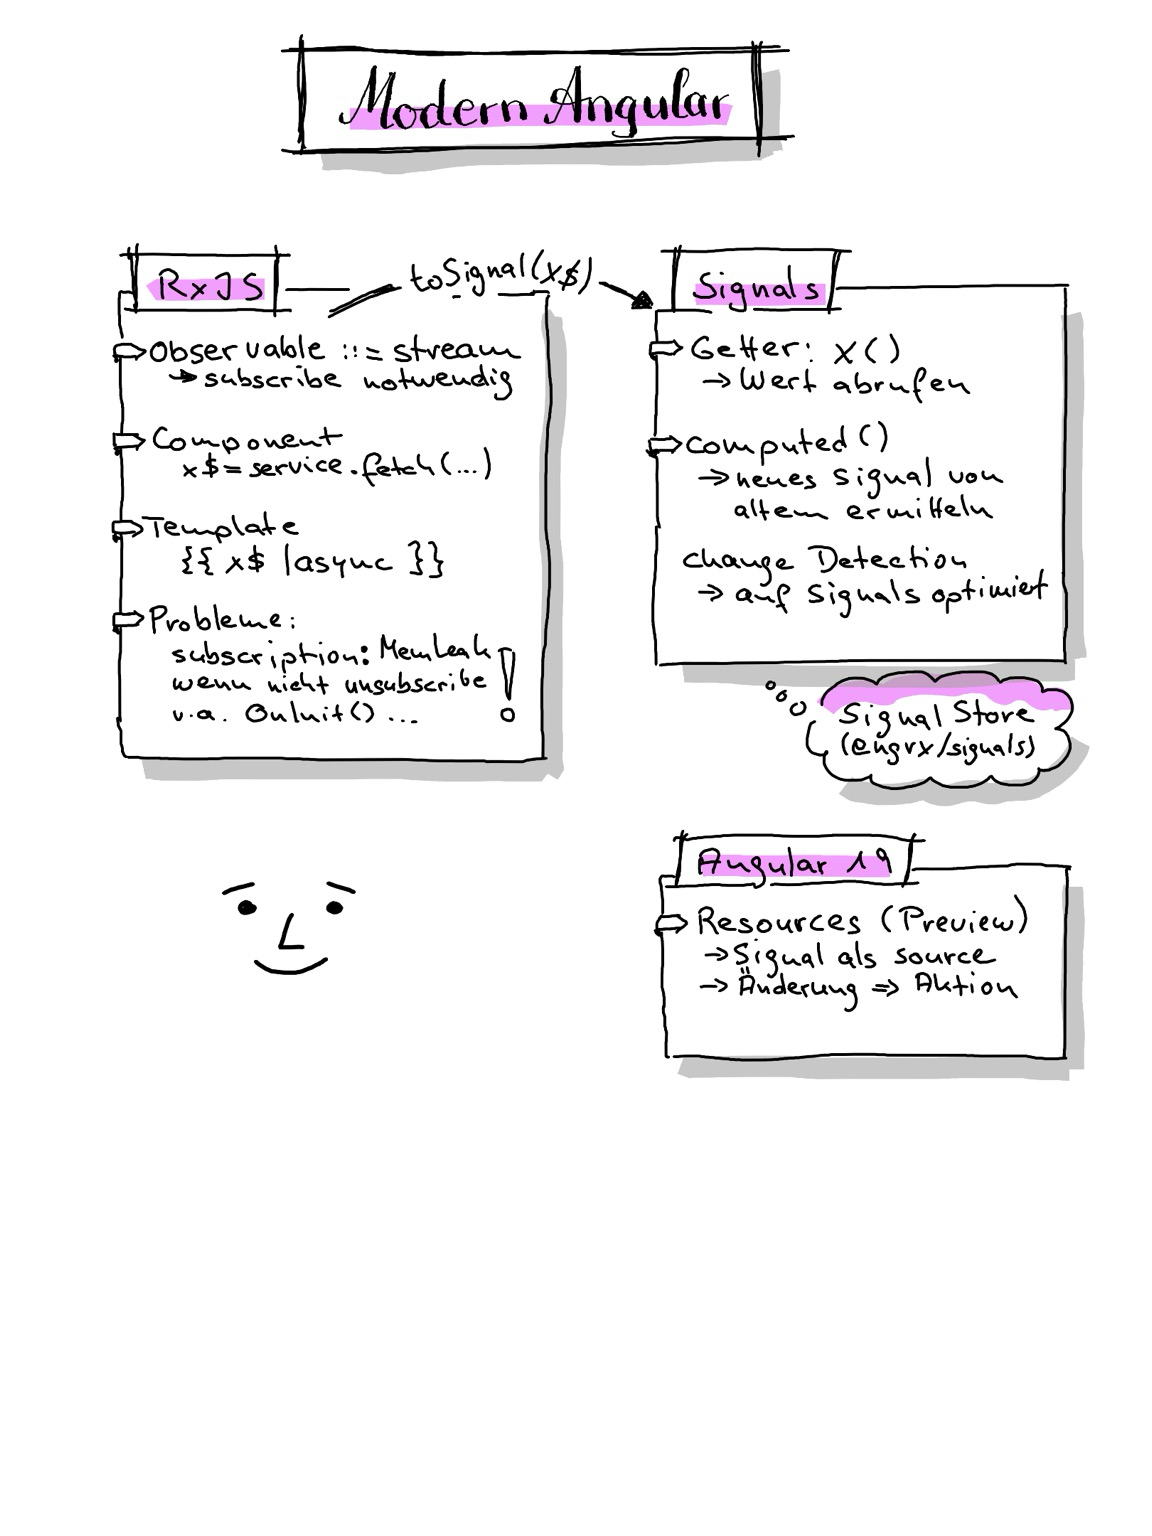 Modern Angular
RxJS
Observable ::= stream
→ subscribe notwendig
Component
x$ = service.fetch(...)
Template
{{ x$ | async }}
Probleme:
subscription: MemLeak
wenn nicht unsubscribe
v.a. OnInit() ...
!
toSignal(x$)
Signals
Getter: x()
→ Wert abrufen
computed()
→ neues Signal von
altem ermitteln
change Detection
→ auf Signals optimiert
Signal Store
(@ngrx/signals)
Angular 19
Resources (Preview)
→ Signal als source
→ Änderung ⇒ Aktion